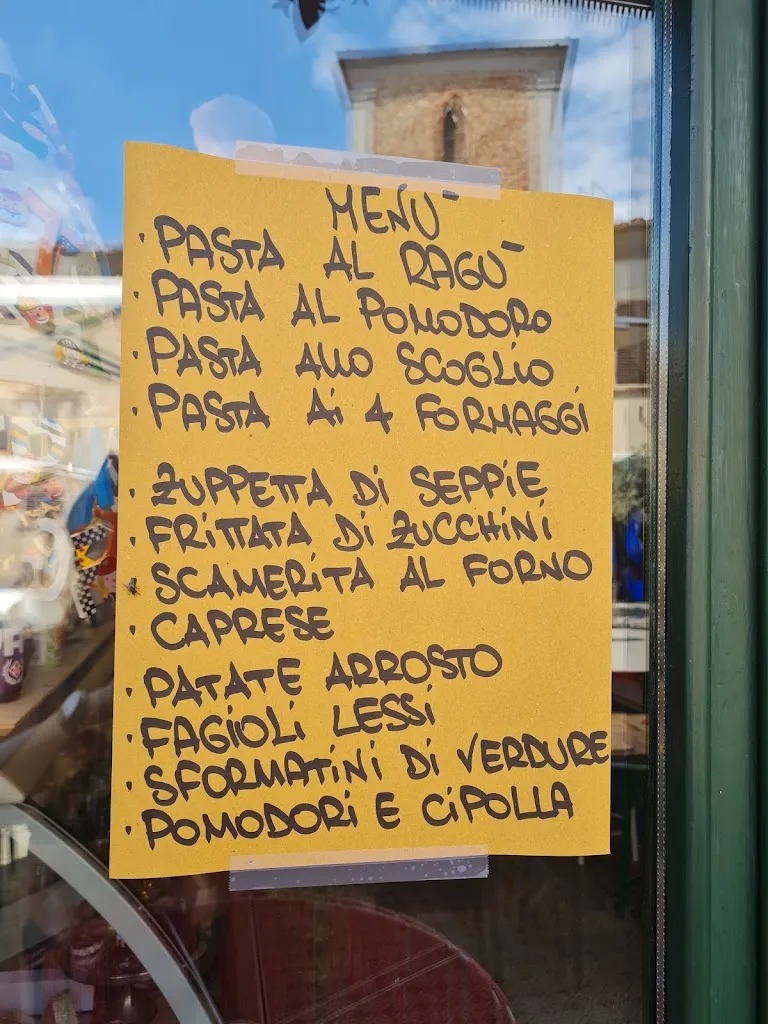 MENÙ
· PASTA AL RAGÙ
· PASTA AL POMODORO
· PASTA ALLO SCOGLIO
· PASTA Ai 4 FORMAGGI
· ZUPPETTA Di SEPPiE
· FRiTTATA Di ZUCCHiNi
· SCAMERiTA AL FORNO
· CAPRESE
· PATATE ARROSTO
· FAGiOLi LESSi
· SFORMATiNi Di VERDURE
· POMODORi E CiPOLLA